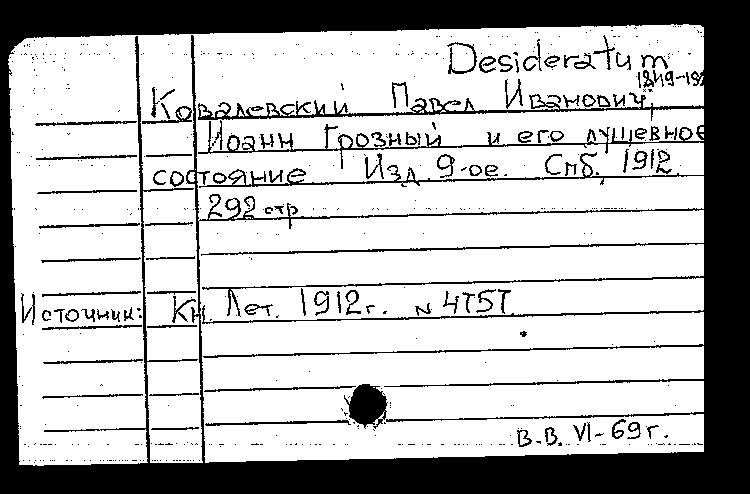 Desideratum
Ковалевский Павел Иванович,
Иоанн Грозный и его душевное
состояние Изд. 9-ое. Спб., 1912
292 стр
Источник: Кн Лет. 1912 г. N
В.В. VI-69 г.